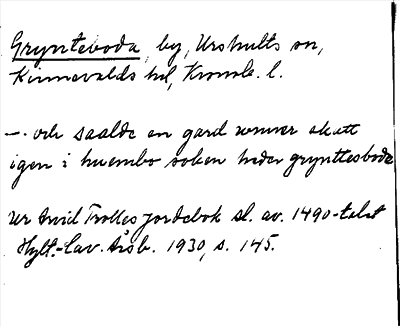 Gryntevoda, by, Urshults sn,
Kinnevalds hd, Kronob. l.
—. och saalde en gard vnner skatt
igen i huembo soken heder grynttesboda
Ur Arvid Trolles jordebok sl. av. 1490-talet
Hylt.-Cav. Årsb. 1930, s. 145.